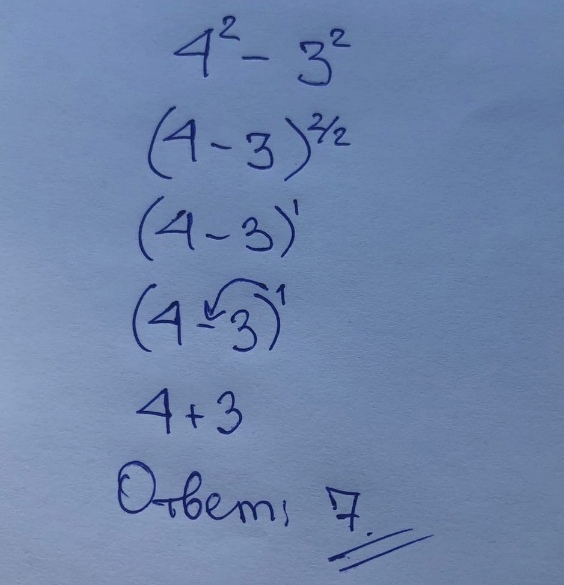 4² - 3²
(4 - 3)^2/2
(4 - 3)¹
(4 - 3)¹
4 + 3
Ответ: 7.